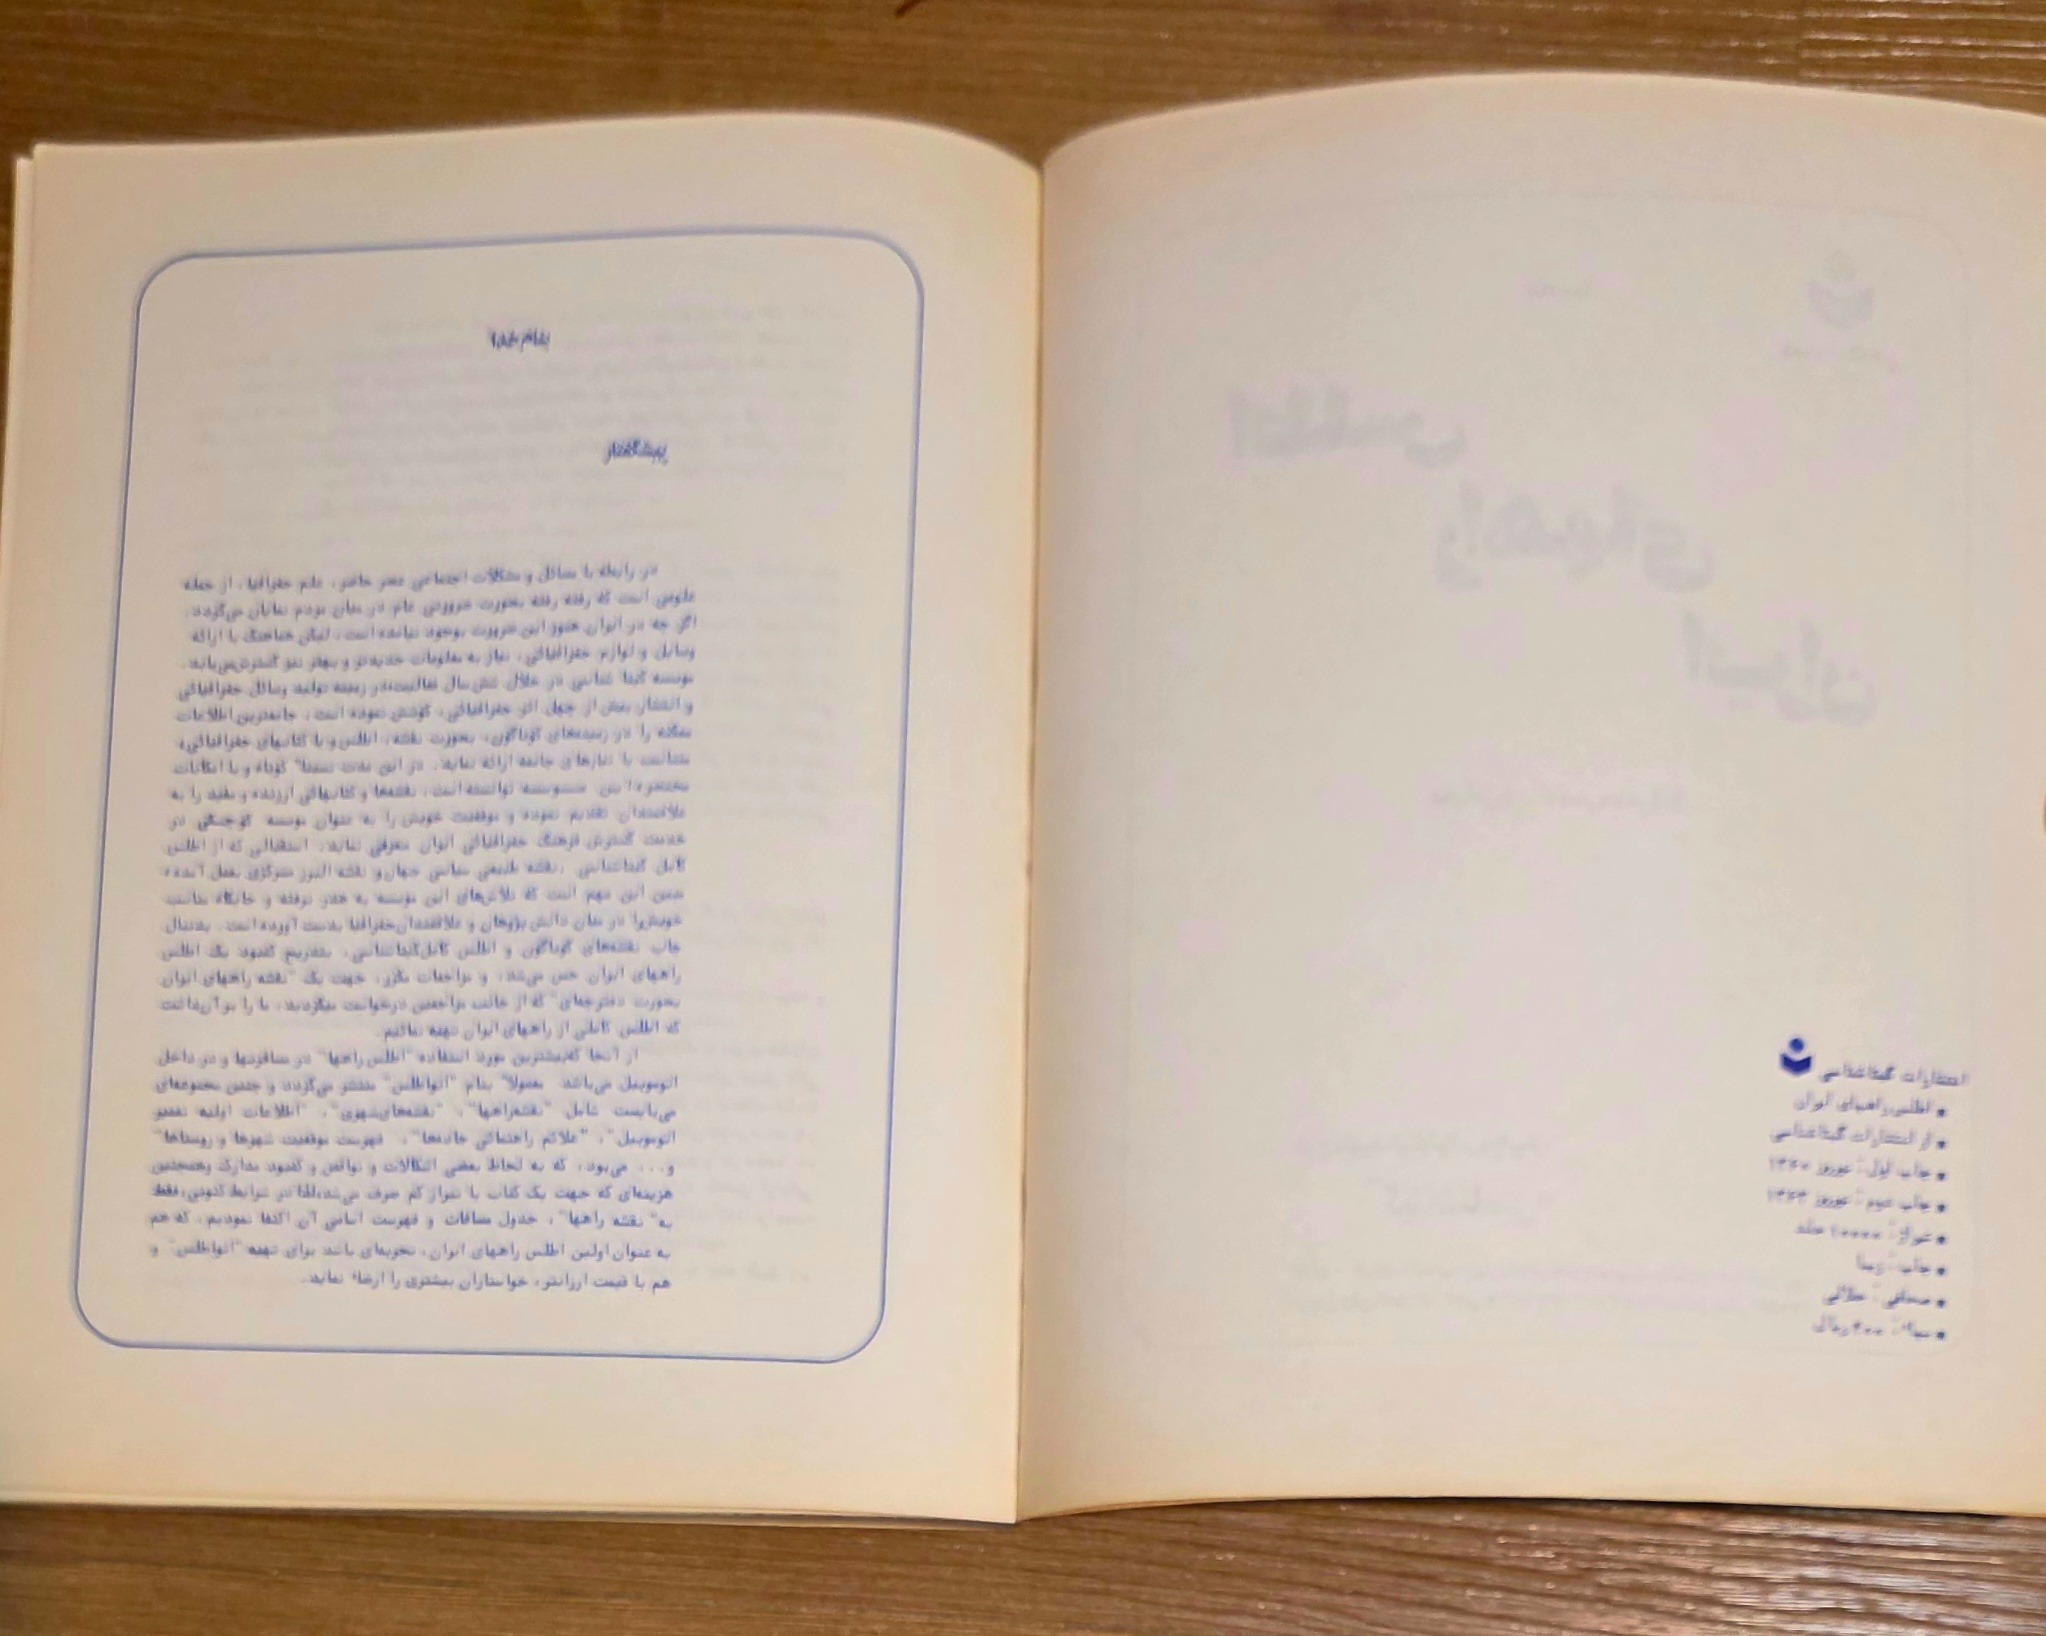 انتشارات گیتاشناسی
● اطلس راههای ایران
● از انتشارات گیتاشناسی
● چاپ اول: نوروز ۱۳۶۰
● چاپ دوم: نوروز ۱۳۶۳
● تیراژ: ۱۰۰۰۰ جلد
● چاپ:
● صحافی: جلالی
● ریال
بنام خدا
پیشگفتار
در رابطه با مسائل و مشکلات اجتماعی عصر حاضر، علم جغرافیا، از جمله
علومی است که رفته رفته بصورت ضرورتی عام در میان مردم نمایان می‌گردد.
اگر چه در ایران هنوز این ضرورت بوجود نیامده است، لیکن هماهنگ با ارائه
وسایل و لوازم جغرافیائی، نیاز به معلومات جدیدتر و بهتر نیز گسترش‌می‌یابد.
موسسه گیتا شناسی در خلال شش سال فعالیت‌در زمینه تولید وسائل جغرافیائی
و انتشار بیش از چهل اثر جغرافیائی، کوشش نموده است، جامعترین اطلاعات
ممکنه را در زمینه‌های گوناگون، بصورت نقشه، اطلس و یا کتابهای جغرافیائی،
متناسب با نیازهای جامعه ارائه نماید. در این مدت نسبتا" کوتاه و با امکانات
مختصر، این موسسه توانسته است، نقشه‌ها و کتابهائی ارزنده و مفید را به
علاقمندان تقدیم نموده و موفقیت خویش را به عنوان موسسه کوچکی در
خدمت گسترش فرهنگ جغرافیائی ایران معرفی نماید. استقبالی که از اطلس
کامل گیتاشناسی، نقشه طبیعی سیاسی جهان و نقشه البرز مرکزی بعمل آمده،
مبین این مهم است که تلاش‌های این موسسه به هدر نرفته و جایگاه مناسب
خویش‌را در میان دانش پژوهان و علاقمندان‌جغرافیا بدست آورده است. بدنبال
چاپ نقشه‌های گوناگون و اطلس کامل‌گیتاشناسی، بتدریج کمبود یک اطلس
راههای ایران حس می‌شد، و مراجعات مکرر، جهت یک "نقشه راههای ایران
بصورت دفترچه‌ای" که از جانب مراجعین درخواست میگردید، ما را بر آن‌داشت
که اطلس کاملی از راههای ایران تهیه نمائیم.
از آنجا که‌بیشترین مورد استفاده "اطلس راهها" در مسافرتها و در داخل
اتوموبیل می‌باشد. معمولا" بنام "اتواطلس" منتشر می‌گردد و چنین مجموعه‌ای
می‌بایست شامل "نقشه‌راهها"، "نقشه‌های‌شهری"، "اطلاعات اولیه تعمیر
اتوموبیل"، "علائم راهنمائی جاده‌ها"، فهرست موقعیت شهرها و روستاها"
و... می‌بود، که به لحاظ بعضی اشکالات و نواقص و کمبود مدارک وهمچنین
هزینه‌ای که جهت یک کتاب با تیراژ کم صرف می‌شد،لذا در شرایط کنونی، فقط
به" نقشه راهها"، جدول مسافات و فهرست اسامی آن اکتفا نمودیم، که هم
به عنوان اولین اطلس راههای ایران، تجربه‌ای باشد برای تهیه "اتواطلس" و
هم با قیمت ارزانتر، خواستاران بیشتری را ارضاء نماید.